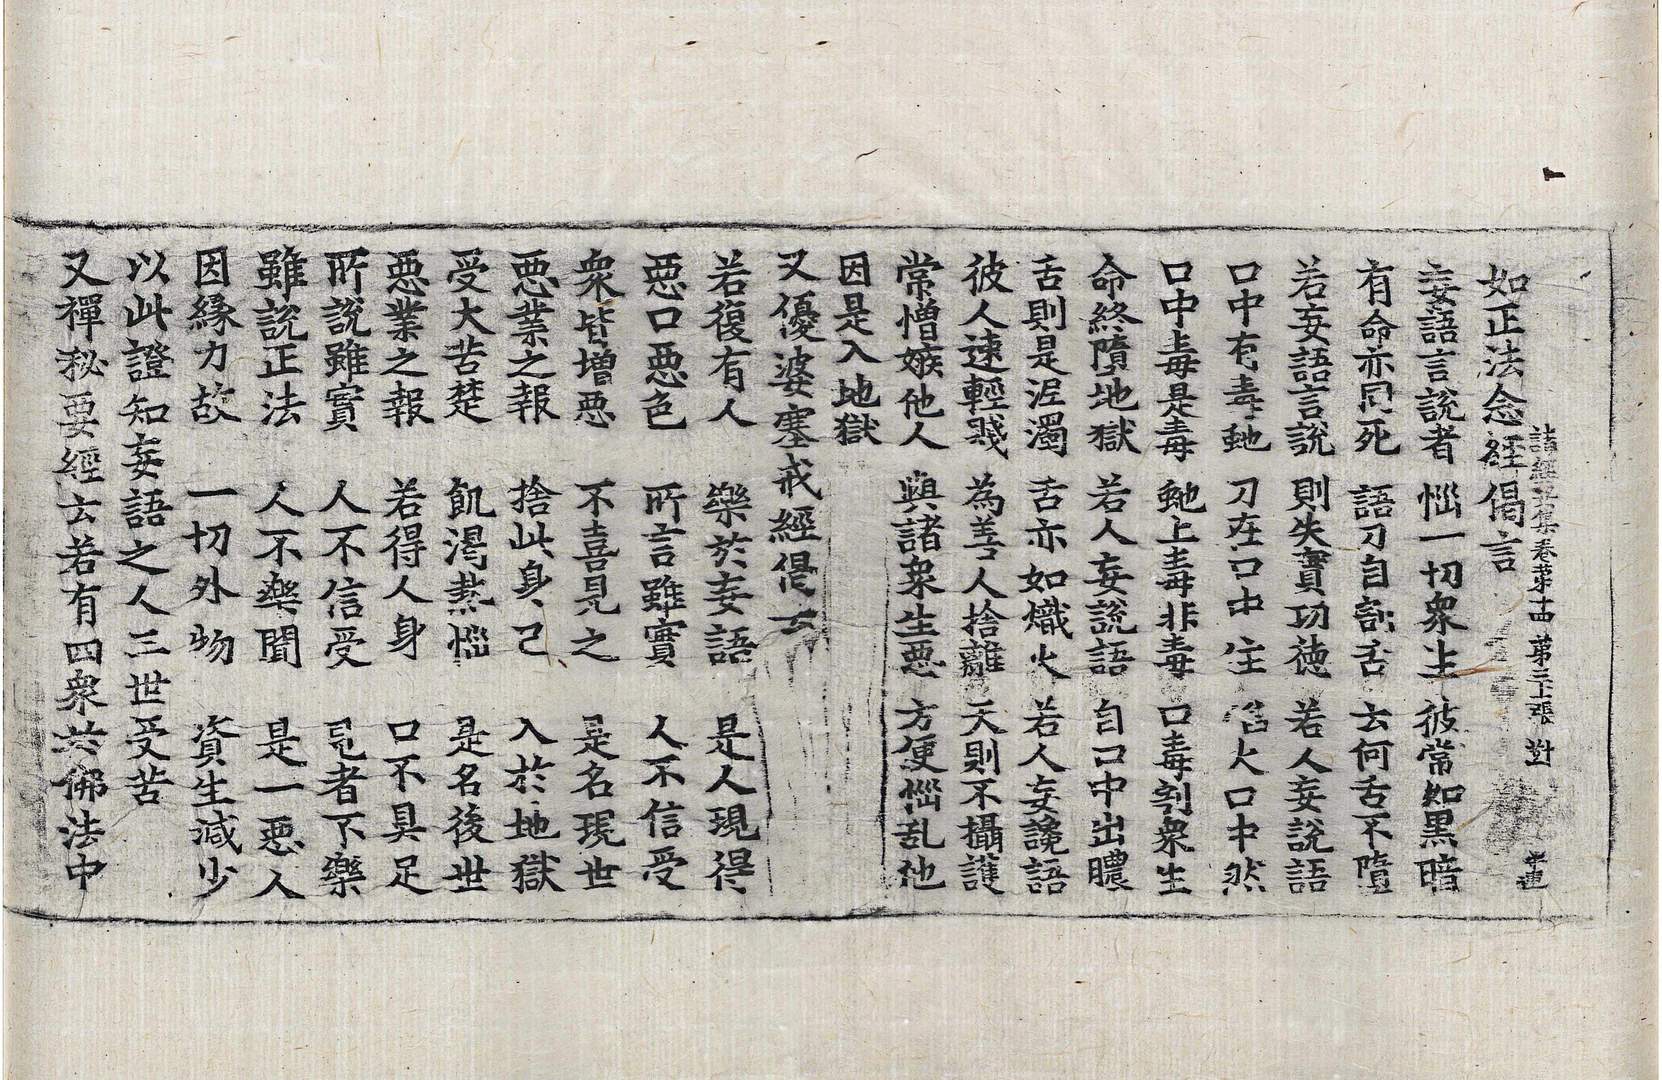 如正法念経偈言
諸經要集卷第十四 第二十張 對
妄語言說者 惱一切衆生 彼常如黒暗
有命亦同死 語刀自割舌 云何舌不墮
若妄語言說 則失實功徳 若人妄說語
口中有毒虵 刀在口中住 焰火口中然
口中毒是毒 虵上毒非毒 口毒割衆生
命終墮地獄 若人妄說語 自口中出膿
舌則是泥濁 舌亦如熾火 若人妄讒語
彼人速輕賤 為善人捨離 天則不攝護
常憎嫉他人 與諸衆生惡 方便惱乱他
因是入地獄
又優婆塞戒經偈云
若復有人 樂於妄語 是人現得
惡口惡色 所言雖實 人不信受
衆皆增惡 不喜見之 是名現世
惡業之報 捨此身已 入於地獄
受大苦楚 飢渴熱惱 是名後世
惡業之報 若得人身 口不具足
所說雖實 人不信受 見者不樂
雖說正法 人不樂聞 是一惡人
因緣力故 一切外物 資生減少
以此證知妄語之人三世受苦
又禪秘要經云若有四衆於佛法中